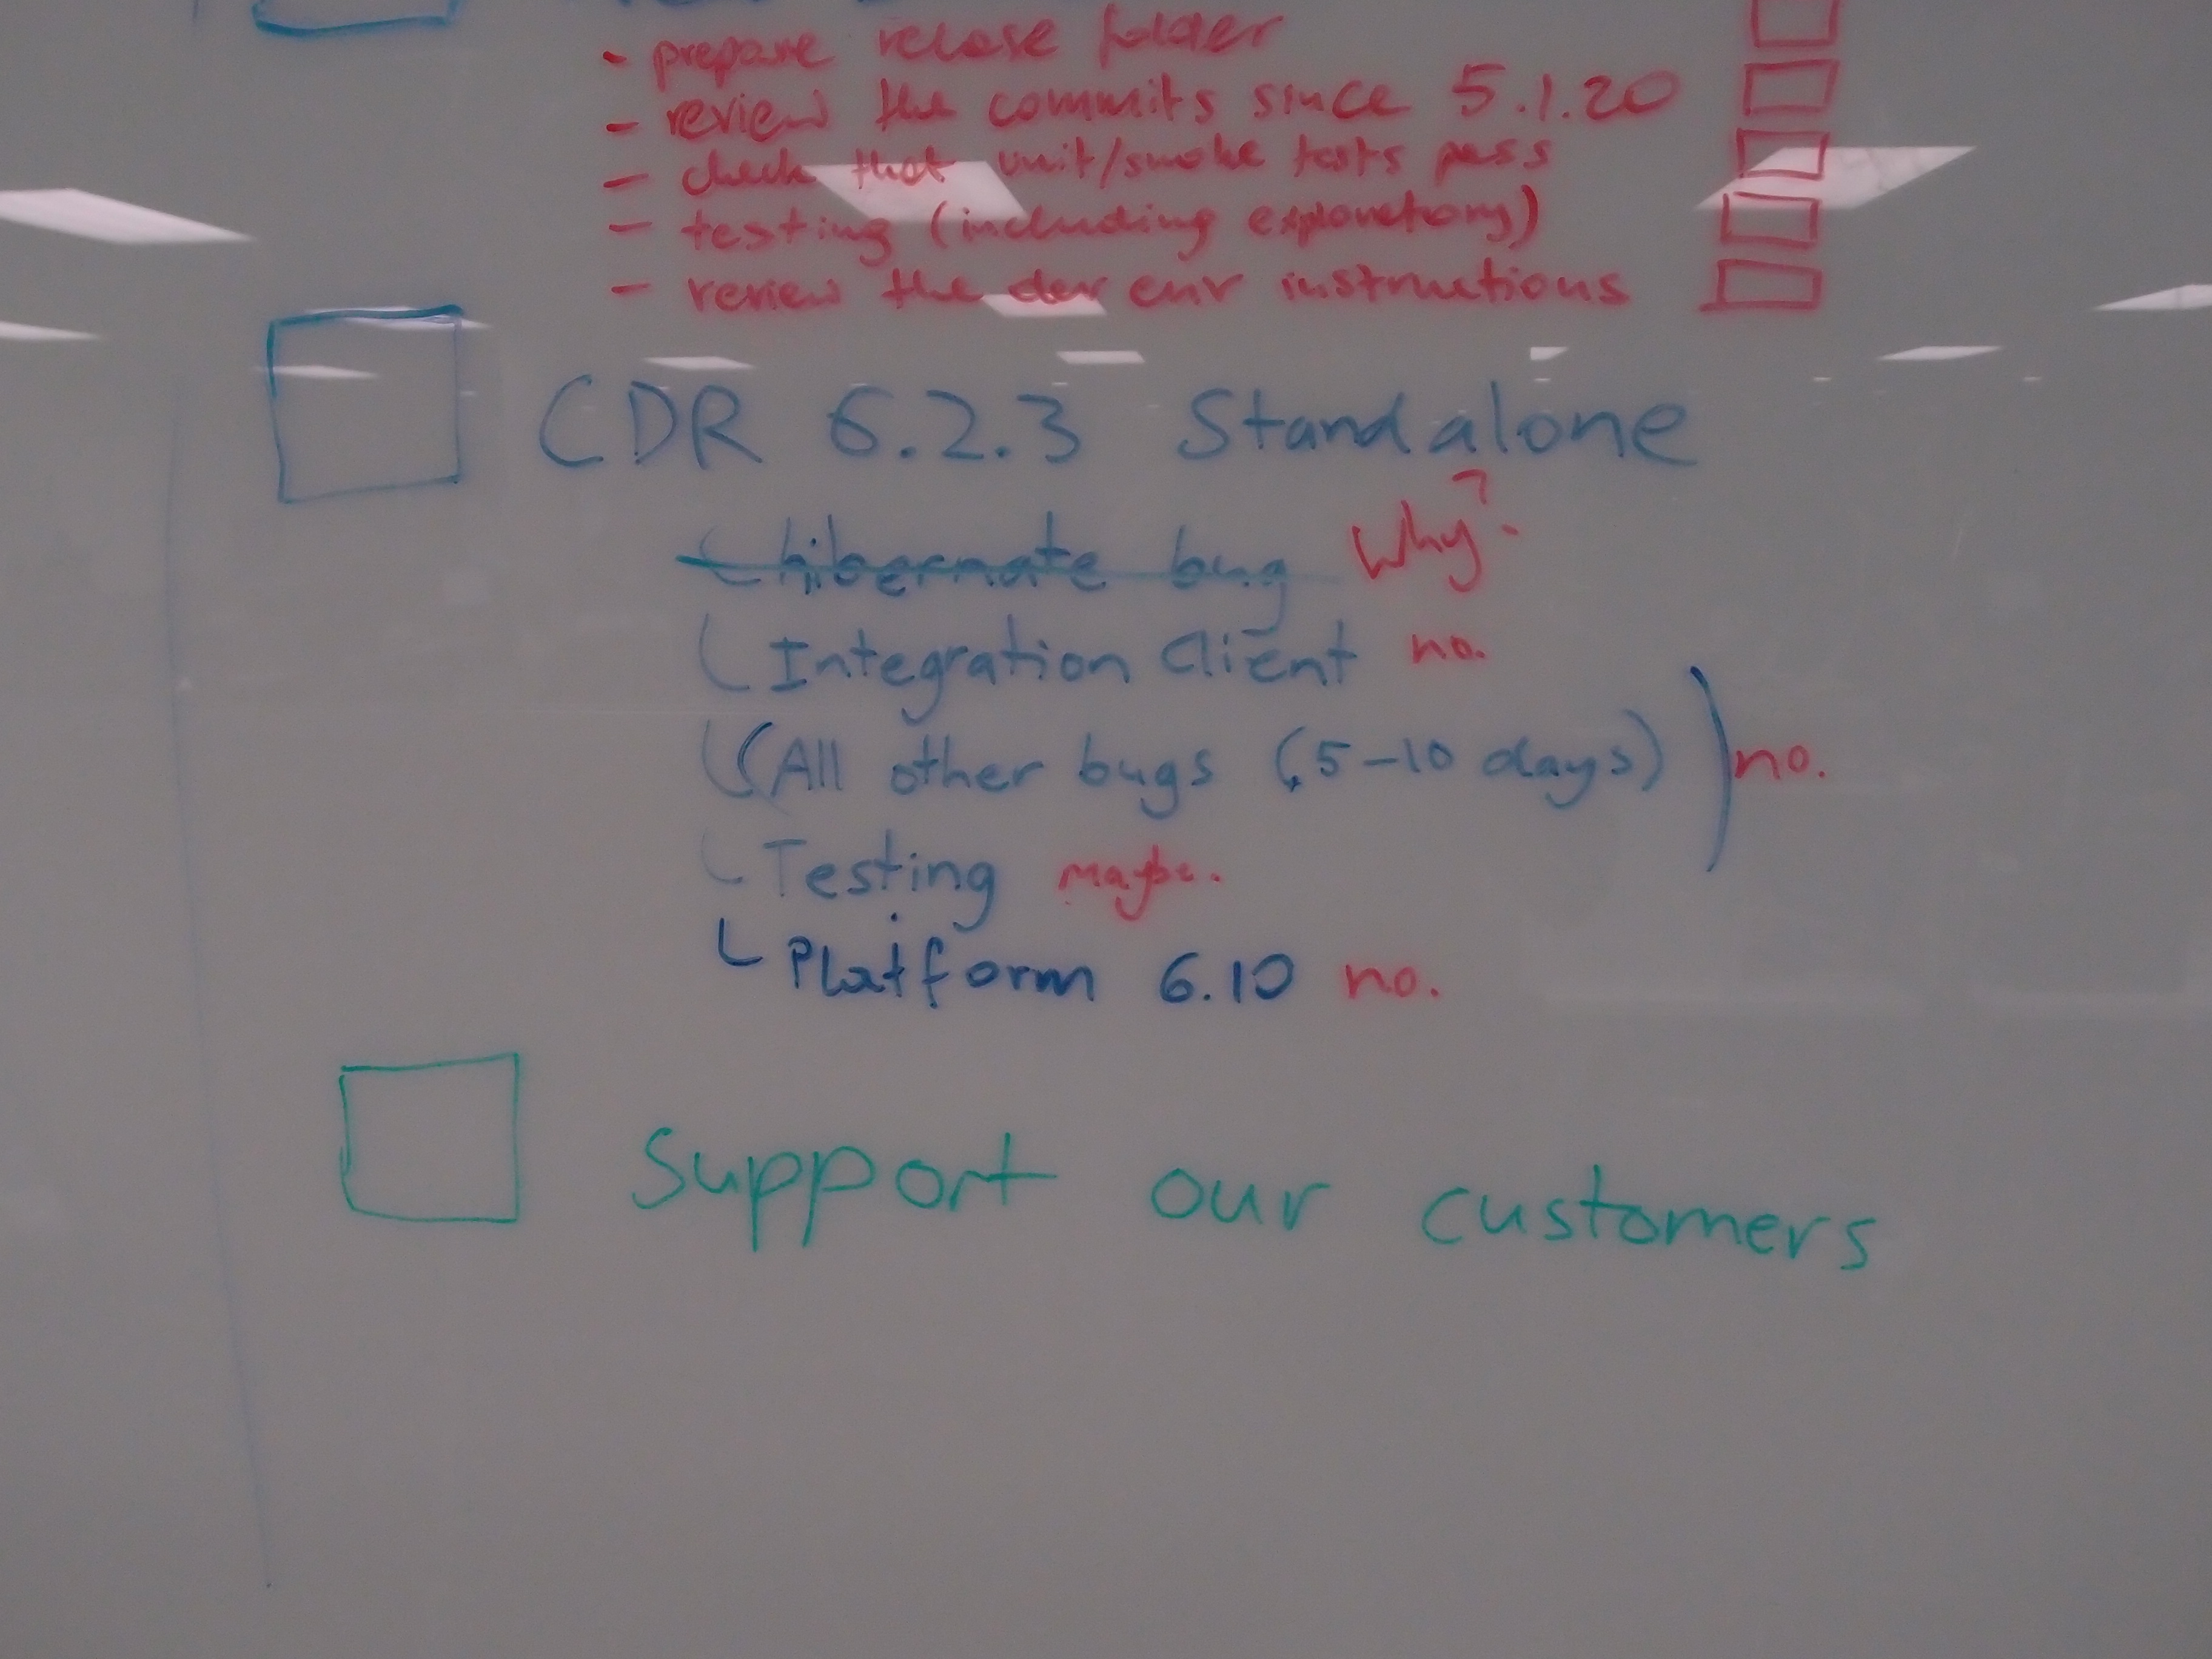 - prepare relase folder
- review the commits since 5.1.20
- check that unit/smoke tests pass
- testing (including exploratory)
- review the dev env instructions
CDR 6.2.3 Standalone
hibernate bug Why?
Integration Client no.
(All other bugs (5-10 days) ) no.
Testing maybe.
Platform 6.10 no.
Support our customers